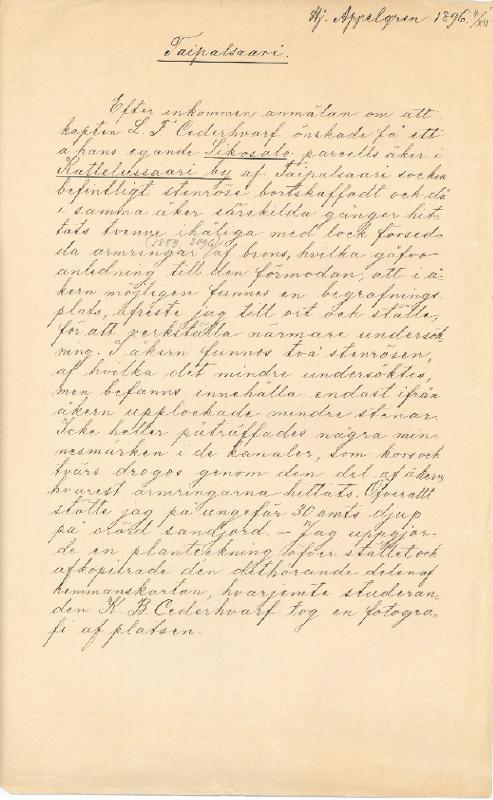 Hj. Appelgren 1896 4/XII
Taipalsaari.
Efter inkommen anmälan om att
kapten L. F. Cederhvarf önskade få ett
å hans egande Sikosalo parcells åker i
Kuttelussaari by af Taipalsaari socken
befintligt stenröse bortskaffadt och då
i samma åker särskilda gånger hit-
tats tvenne ihåliga med lock försed-
da armringar (af brons, hvilka gåfvo
anledning till den förmodan, att i å-
kern möjligen funnes en begrafnings-
plats, afreste jag till ort och ställe,
för att verkställa närmare undersök-
ning. I åkern funnos två stenrösen,
af hvilka det mindre undersöktes,
men befanns innehålla endast ifrån
åkern upplockade mindre stenar.
Icke heller påträffades några min-
nesmärken i de kanaler, som kors och
tvärs drogos genom den del af åkern,
hvarest armringarna hittats. Öfverallt
stötte jag på ungefär 30 cmts djup
på orörd sandjord. – Jag uppgjor-
de en planteckning öfver stället och
afkopierade den ditthörande delen af
hemmanskartan, hvarjemte studeran-
den K. B. Cederhvarf tog en fotogra-
fi af platsen.